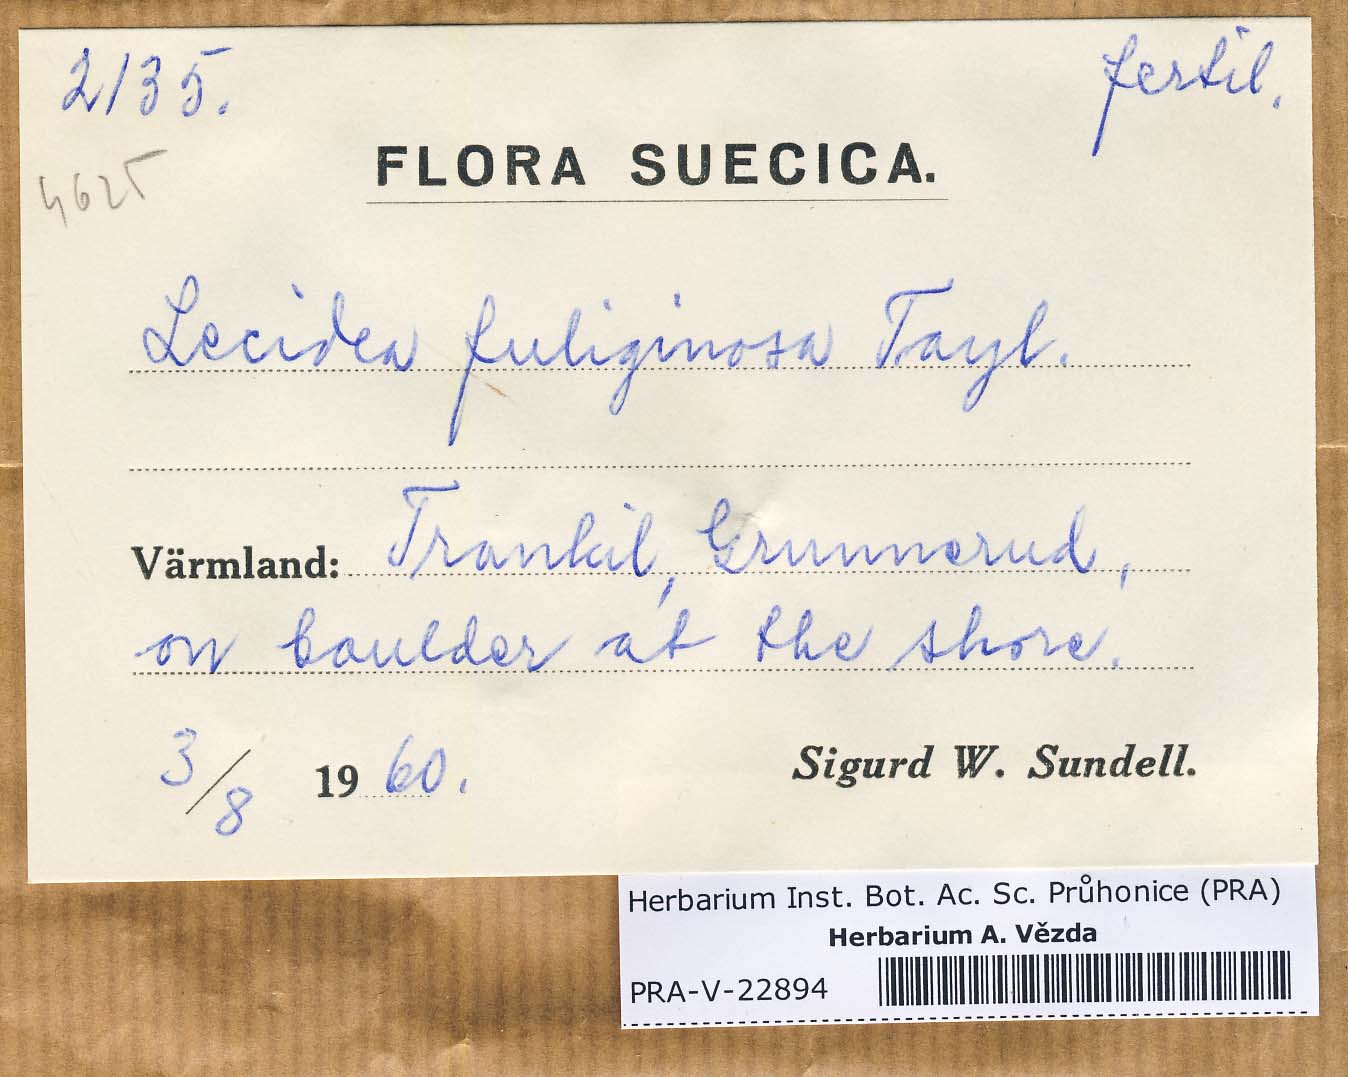 2135.
fertil.
4625
FLORA SUECICA.
Lecidea fuliginosa Tayl.
Värmland: Trankil, Grunnerud,
on boulder at the shore.
3/8 1960.
Sigurd W. Sundell.
Herbarium Inst. Bot. Ac. Sc. Průhonice (PRA)
Herbarium A. Vězda
PRA-V-22894